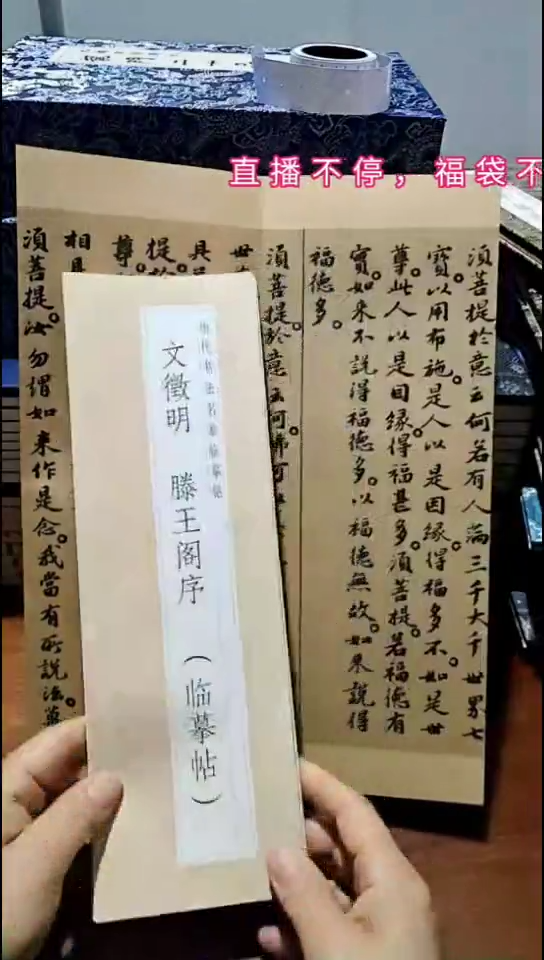 直播不停，福袋不
須菩提於意云何若有人滿三千大千世界七
寶。以用布施。是人以是因緣。得福多不。如是世
尊。此人以是因緣。得福甚多。須菩提。若福德有
實。如来不說得福德多。以福德無故。如来說得
福德多。
須菩提於意云何。佛可
世
具
提
尊
相具
須菩提。汝勿謂如来作是念。我當有所說法。莫
文徵明 滕王阁序 （临摹帖）